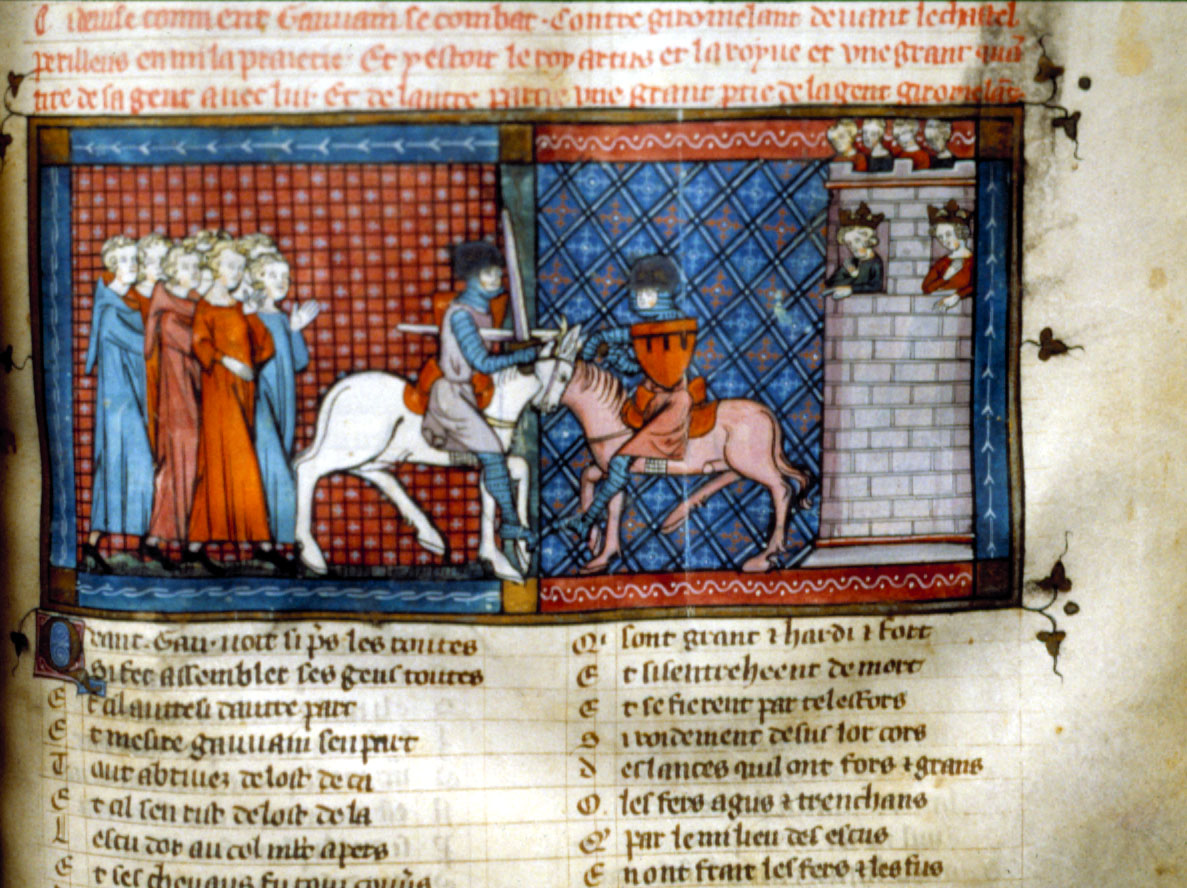 deuise coment Gauuain se combat. Contre giromelant deuant le chastel
perilleus enmi la praierie Et y estoit le roy artus et la royne et vne grant quã
tite de sa gent auec lui. Et de lautre partie vne grant ptie de la gent giromelãt
Qvant. Gau. uoit si ps les routes
Si fet assembler ses gens toutes
Et cil autresi dautre part
Et mesire gauuain sen part
Tout abriuez de lost de ca
Et cil sen rist de lost de la
Lescu dor au col
Et ses cheuaus fu touz couũs
Qͥ sont grant ⁊ hardi ⁊ fort
Et si sentreheent de mort
Et se fierent par tel esfors
Si roidement desus lor cors
Des lances quil ont fors ⁊ grans
O les fers agus ⁊ trenchans
Qͥ par le milieu des escus
En ont frait les fers ⁊ les fus